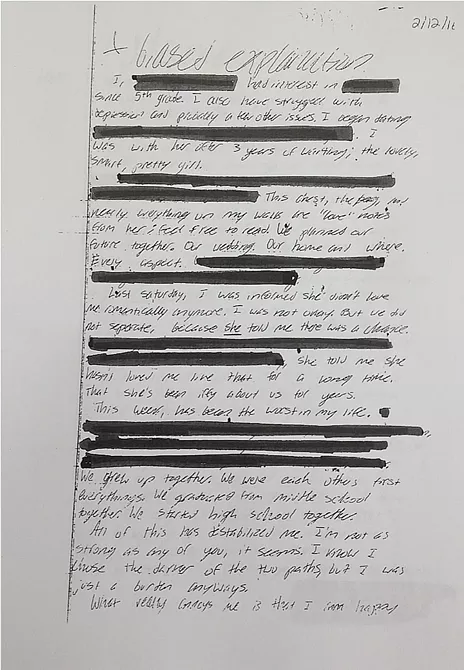 2/12/16
biased explanation
I, had interest in
since 5th grade. I also have struggled with
depression and probably a few other issues. I began dating
I
was with her after 3 years of waiting; the lovely,
smart, pretty girl.
This chest, the bag, and
nearly everything on my walls are "love" notes
from her; feel free to read. We planned our
future together. Our wedding. Our home and where.
Every aspect.
Last saturday, I was informed she didn't love
me romantically anymore. I was not okay. But we did
not seperate, because she told me there was a chance.
she told me she
hasn't loved me like that for a long time.
That she's been iffy about us for years.
This week, has been the worst in my life.
We grew up together. We were each others first
everythings. We graduated from middle school
together. We started high school together.
All of this has destabilized me. I'm not as
strong as any of you, it seems. I know I
chose the darker of the two paths, but I was
just a burden anyways.
What really annoys me is that I am happy